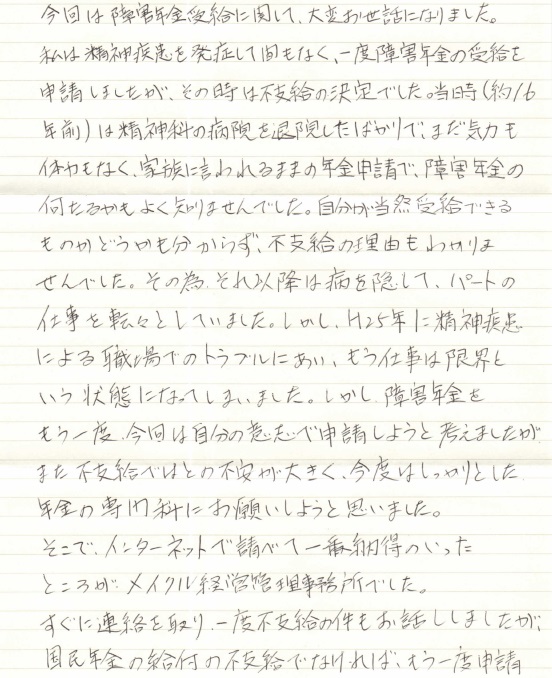 今回は障害年金受給に関して、大変お世話になりました。
私は精神疾患を発症して間もなく、一度障害年金の受給を
申請しましたが、その時は不支給の決定でした。当時(約16
年前)は精神科の病院を退院したばかりで、まだ気力も
体力もなく、家族に言われるままの年金申請で、障害年金の
何たるかもよく知りませんでした。自分が当然受給できる
ものかどうかも分からず、不支給の理由もわかりま
せんでした。その為、それ以降は病を隠して、パートの
仕事を転々としていました。しかし、H25年に精神疾患
による職場でのトラブルにあい、もう仕事は限界と
いう状態になってしまいました。しかし、障害年金を
もう一度、今回は自分の意志で申請しようと考えましたが、
また不支給ではとの不安が大きく、今度はしっかりとした
年金の専門科にお願いしようと思いました。
そこで、インターネットで調べて一番納得のいった
ところが、メイクル経営管理事務所でした。
すぐに連絡を取り、一度不支給の件もお話ししましたが、
国民年金の給付の不支給でなければ、もう一度申請